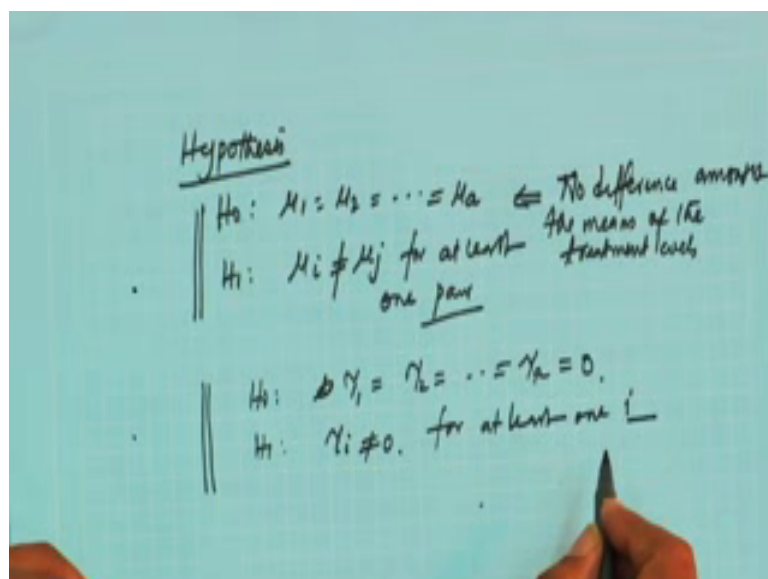 Hypothesis
H0: μ1 = μ2 = ··· = μa ⇐ No difference amongst
the means of the
treatment levels
H1: μi ≠ μj for at least
one pair
H0: τ1 = τ2 = ·· = τa = 0.
H1: τi ≠ 0. for at least one i